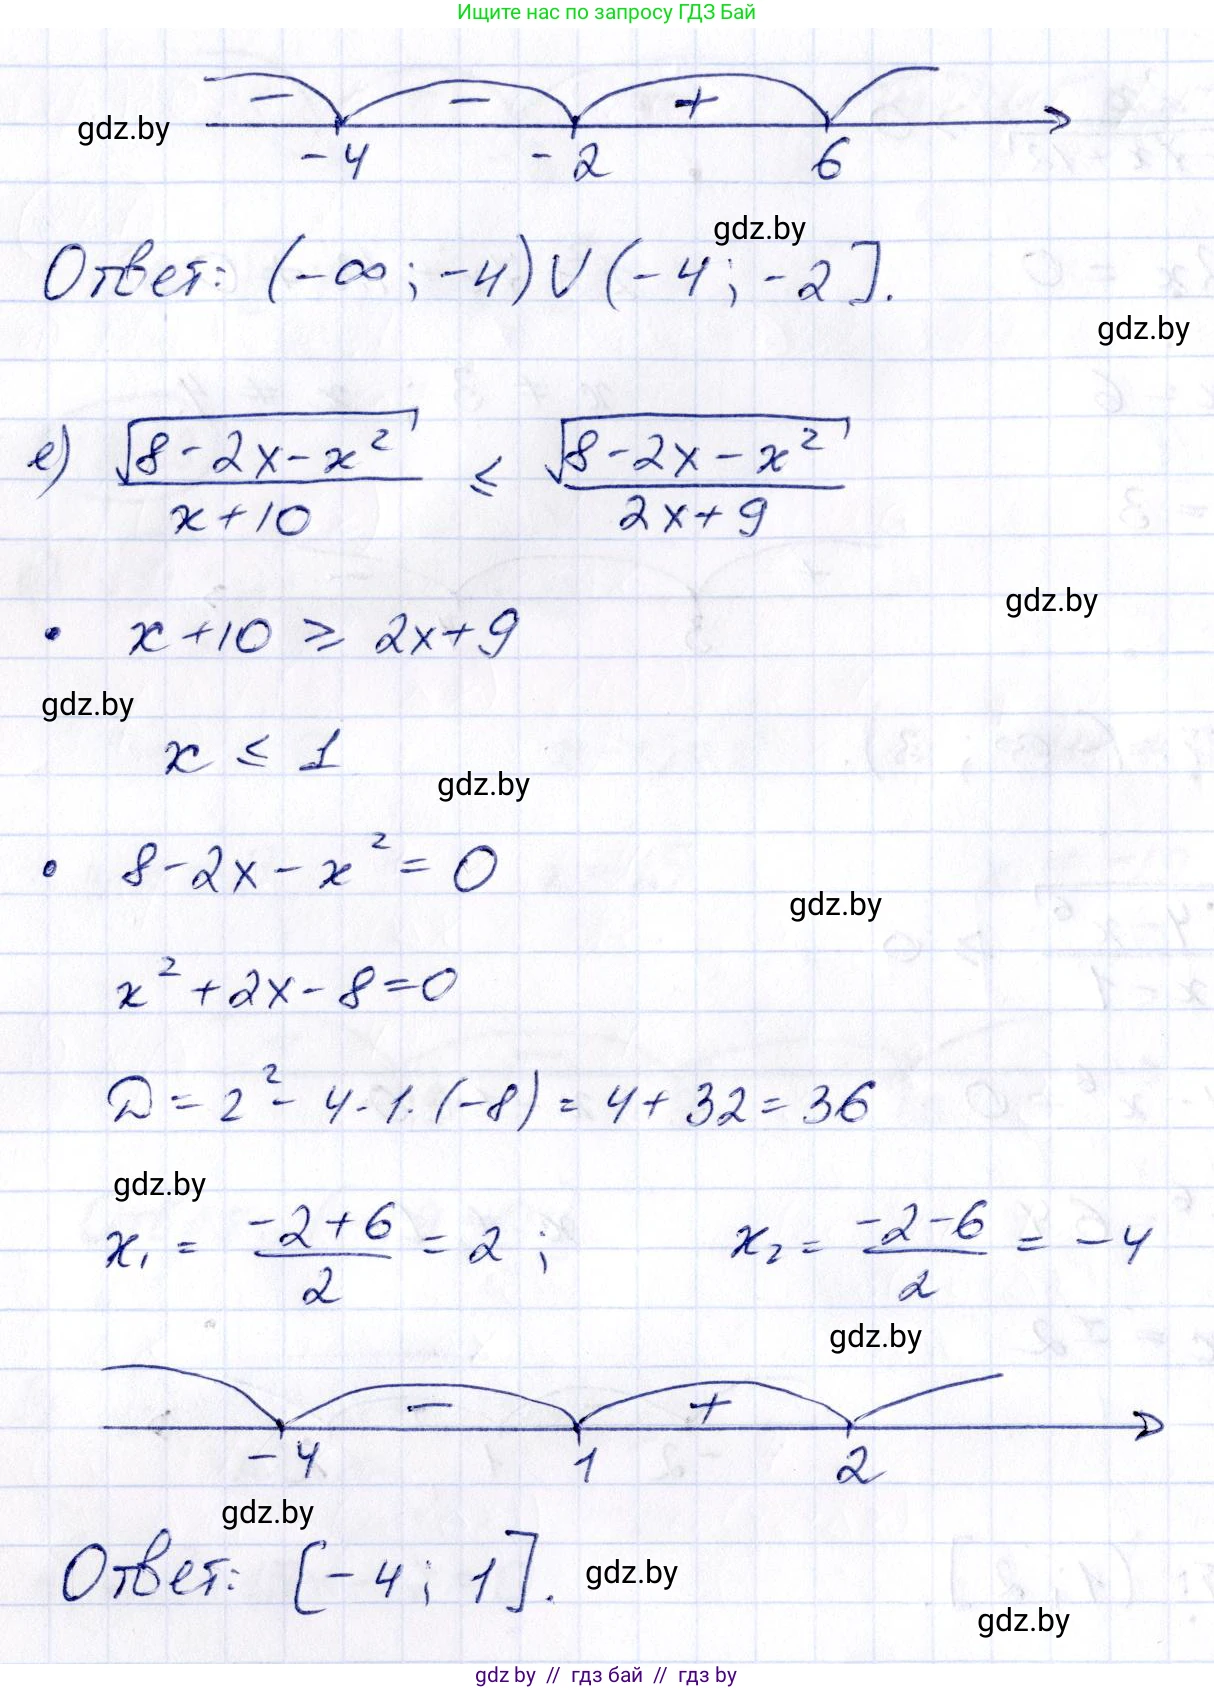 Ищите нас по запросу ГДЗ Бай
− − +
gdz.by
−4 −2 6
gdz.by
Ответ: (−∞; −4) ∪ (−4; −2].
gdz.by
е) √(8−2x−x²) / (x+10) ≤ √(8−2x−x²) / (2x+9)
gdz.by
• x+10 ≥ 2x+9
gdz.by
x ≤ 1
gdz.by
• 8−2x−x² = 0
gdz.by
x²+2x−8=0
D = 2² − 4·1·(−8) = 4+32 = 36
gdz.by
x₁ = (−2+6)/2 = 2 ; x₂ = (−2−6)/2 = −4
gdz.by
− +
−4 1 2
gdz.by
Ответ: [−4; 1].
gdz.by
gdz.by
gdz by // гдз бай // gdz by